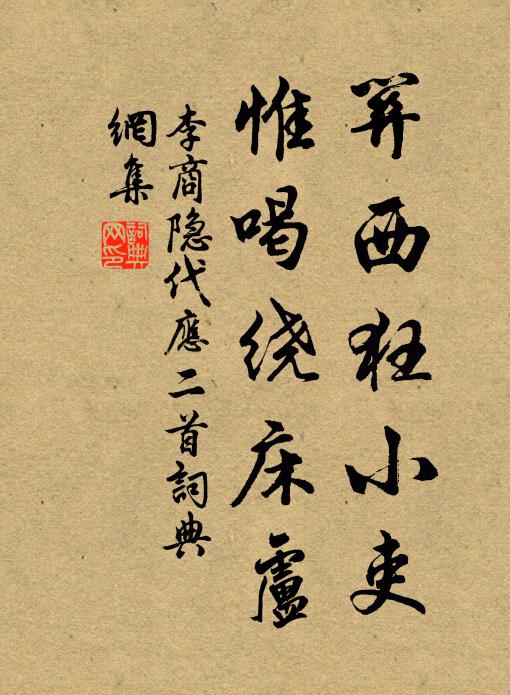 关西狂小吏
惟喝绕床盧
李商隐代應二首詞典
網集
詞典
网印